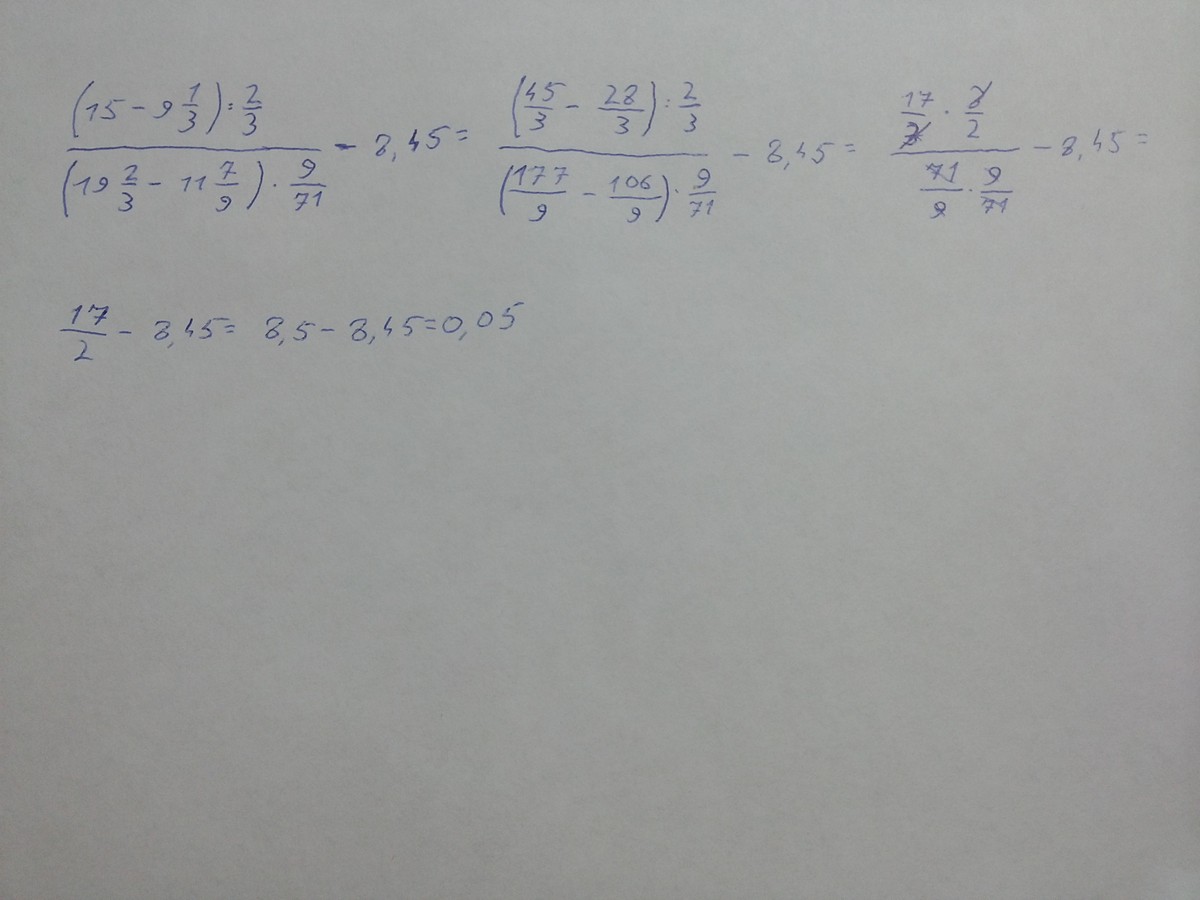 \frac{(15 - 9\frac{1}{3}) : \frac{2}{3}}{(19\frac{2}{3} - 11\frac{7}{9}) \cdot \frac{9}{71}} - 8,45 = \frac{(\frac{45}{3} - \frac{28}{3}) : \frac{2}{3}}{(\frac{177}{9} - \frac{106}{9}) \cdot \frac{9}{71}} - 8,45 = \frac{\frac{17}{3} \cdot \frac{3}{2}}{\frac{71}{9} \cdot \frac{9}{71}} - 8,45 =
\frac{17}{2} - 8,45 = 8,5 - 8,45 = 0,05